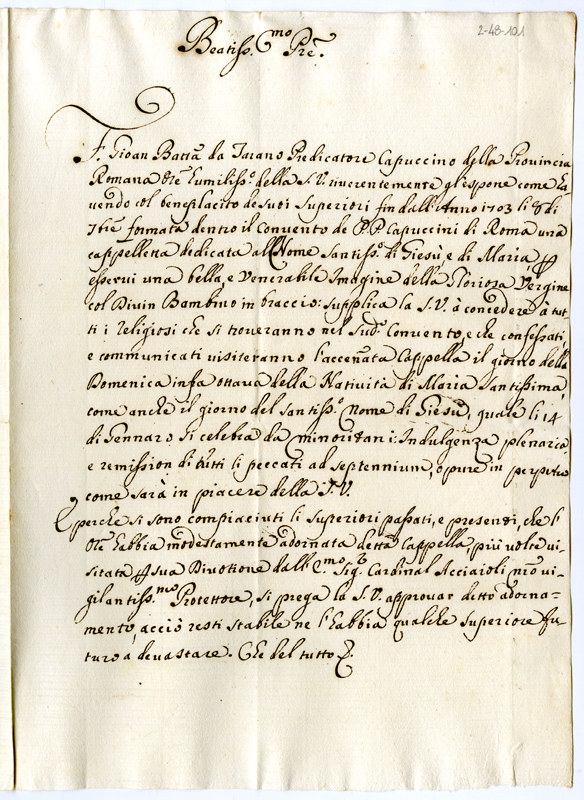 2-48-101
Beatiss.mo Pre.
F. Gioan Batta da Tarano Predicatore Capuccino della Provincia
Romana Ore humiliss.o della S.V. riverentemente gl'espone come ha
vendo col beneplacito de suoi Superiori fin dall'Anno 1703 li 8 di
7bre formata dentro il Convento de PP. Capuccini di Roma una
cappelletta dedicata all Nome Santiss.o di Giesù, e di Maria
esservi una bella, e Venerabile Imagine della Gloriosa Vergine
col Divin Bambino in braccio: supplica la S.V. à concedere à tut
ti i religiosi che si troveranno nel Sud.o Convento, e che confessati,
e communicati visiteranno l'accennata Cappella il giorno della
Domenica infra ottava della Natività di Maria Santissima,
come anche il giorno del Santiss.o Nome di Giesù, quale li 14
di Gennaro si celebra da minoritani: Indulgenza plenaria,
e remission di tutti li peccati ad septennium, o pure in perpetuo
come sarà in piacere della S.V.
E perche si sono compiaciuti li Superiori passati, e presenti, che l'
Ore habbia modestamente adornata detta Cappella, più volte vi-
sitata p sua Divotione dall' E.mo Sig.r Cardinal Acciaioli nro vi-
gilantiss.mo Protettore, si prega la S.V. approvar detto adorna=
mento, acciò resti stabile ne l'habbia qualche Superiore fu-
turo a devastare. Che del tutto &.